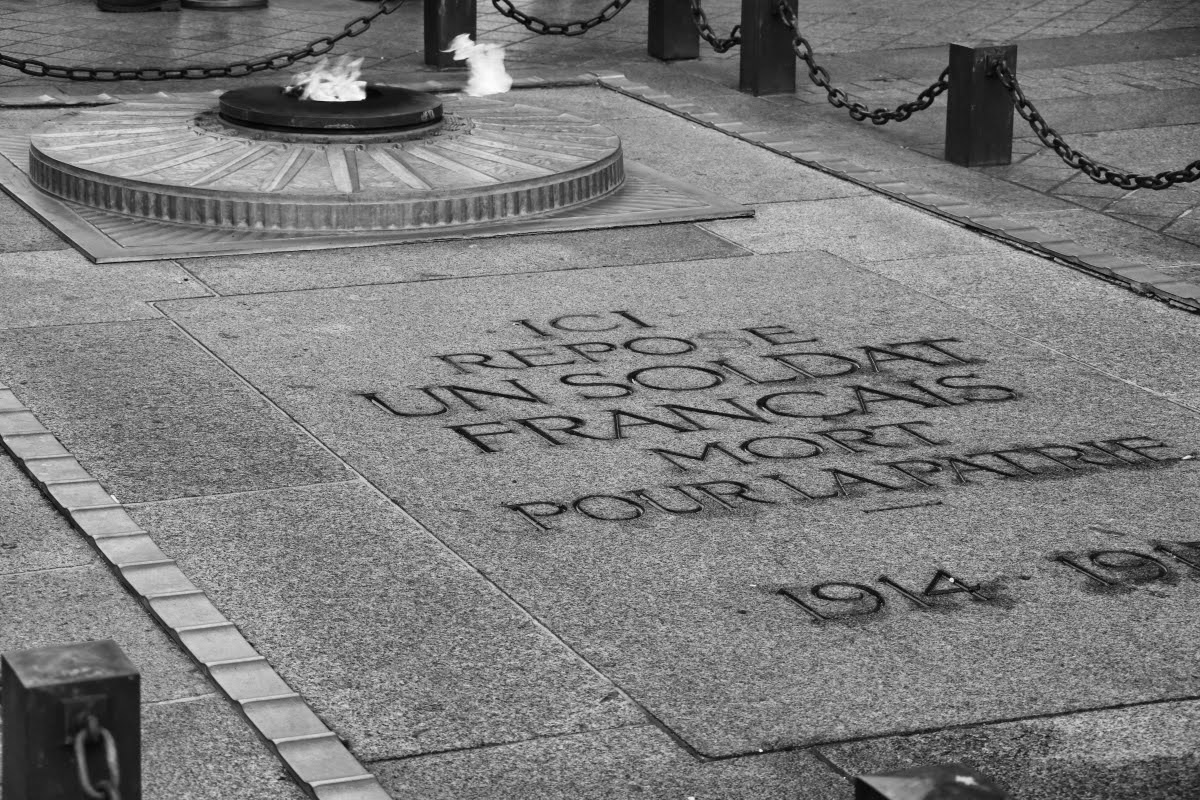 ICI
REPOSE
UN SOLDAT
FRANCAIS
MORT
POUR LA PATRIE
1914